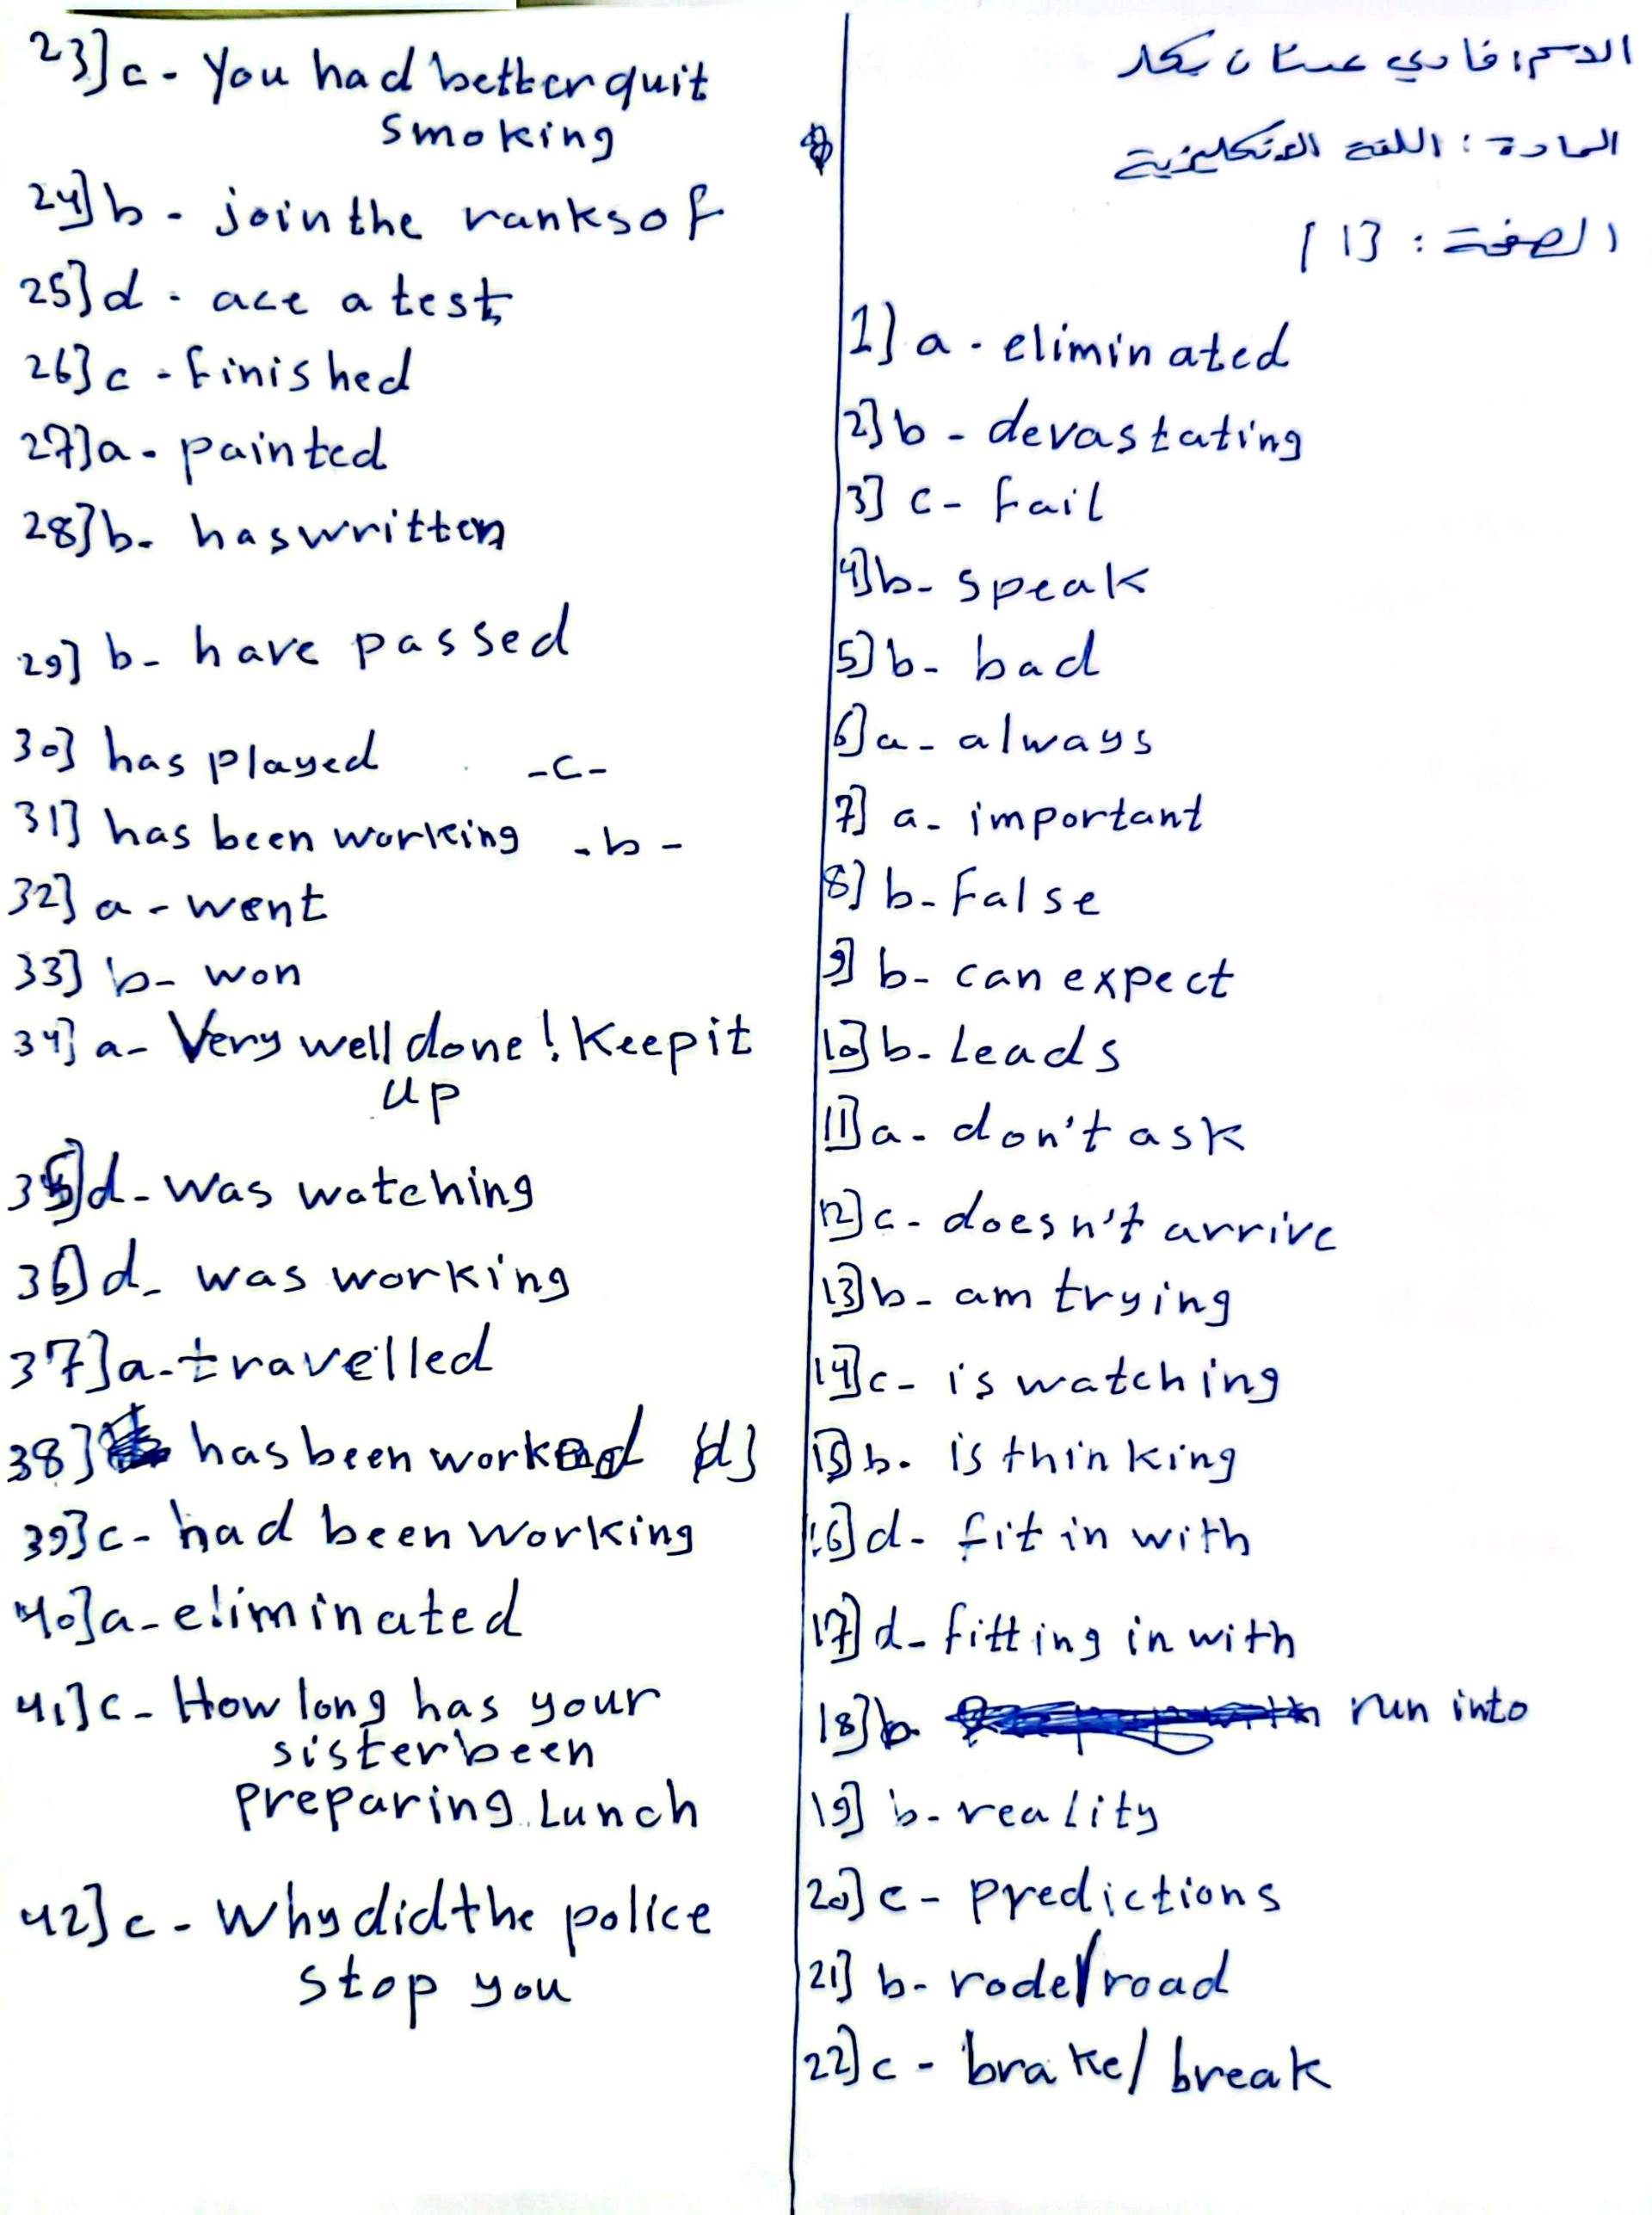 الاسم: فادي عسكان بكار
المادة: اللغة الانكليزية
الصفحة: [1]
1] a - eliminated
2] b - devastating
3] c - fail
4] b - speak
5] b - bad
6] a - always
7] a - important
8] b - False
9] b - can expect
10] b - Leads
11] a - don't ask
12] c - doesn't arrive
13] b - am trying
14] c - is watching
15] b. is thinking
16] d - fit in with
17] d - fitting in with
18] b run into
19] b - reality
20] c - predictions
21] b - rode/road
22] c - brake/ break
23] c - You had better quit
smoking
24] b - join the ranks of
25] d - ace a test
26] c - finished
27] a - painted
28] b - has written
29] b - have passed
30] has played -c-
31] has been working -b-
32] a - went
33] b - won
34] a - Very well done! Keep it
up
35] d - was watching
36] d - was working
37] a - travelled
38] has been worked [d]
39] c - had been working
40] a - eliminated
41] c - How long has your
sister been
preparing Lunch
42] c - Why did the police
stop you